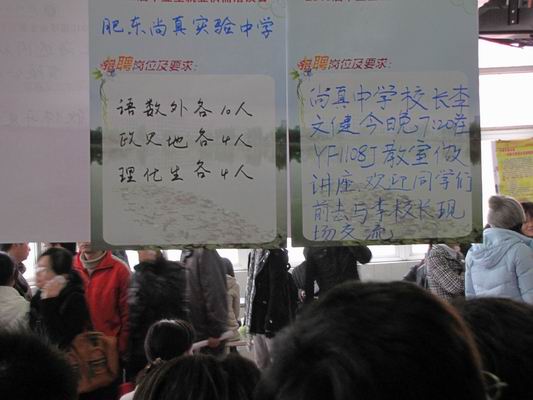 肥东尚真实验中学
招聘岗位及要求:
语数外各10人
政史地各4人
理化生各4人
招聘岗位及要求:
尚真中学校长李
文健今晚7:20在
YF1108J教室做
讲座.欢迎同学们
前去与李校长现
场交流